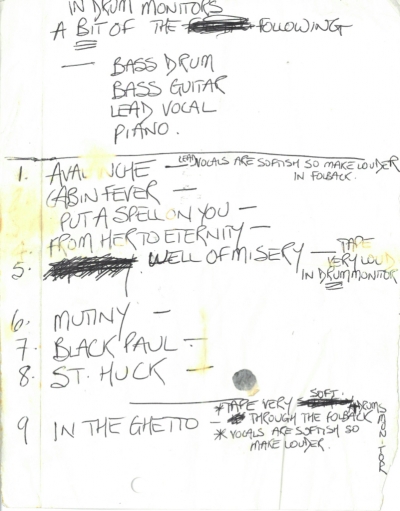 IN DRUM MONITORS
A BIT OF THE FOLLOWING
— BASS DRUM
BASS GUITAR
LEAD VOCAL
PIANO.
1. AVALANCHE — LEAD VOCALS ARE SOFTISH SO MAKE LOUDER
IN FOLBACK.
CABIN FEVER —
PUT A SPELL ON YOU —
FROM HER TO ETERNITY —
5. WELL OF MISERY — TAPE
VERY LOUD
IN DRUM MONITOR
6. MUTINY —
7. BLACK PAUL —
8. ST. HUCK —
9 IN THE GHETTO — * TAPE VERY SOFT. DRUMS
THROUGH THE FOLBACK
* VOCALS ARE SOFTISH SO
MAKE LOUDER.